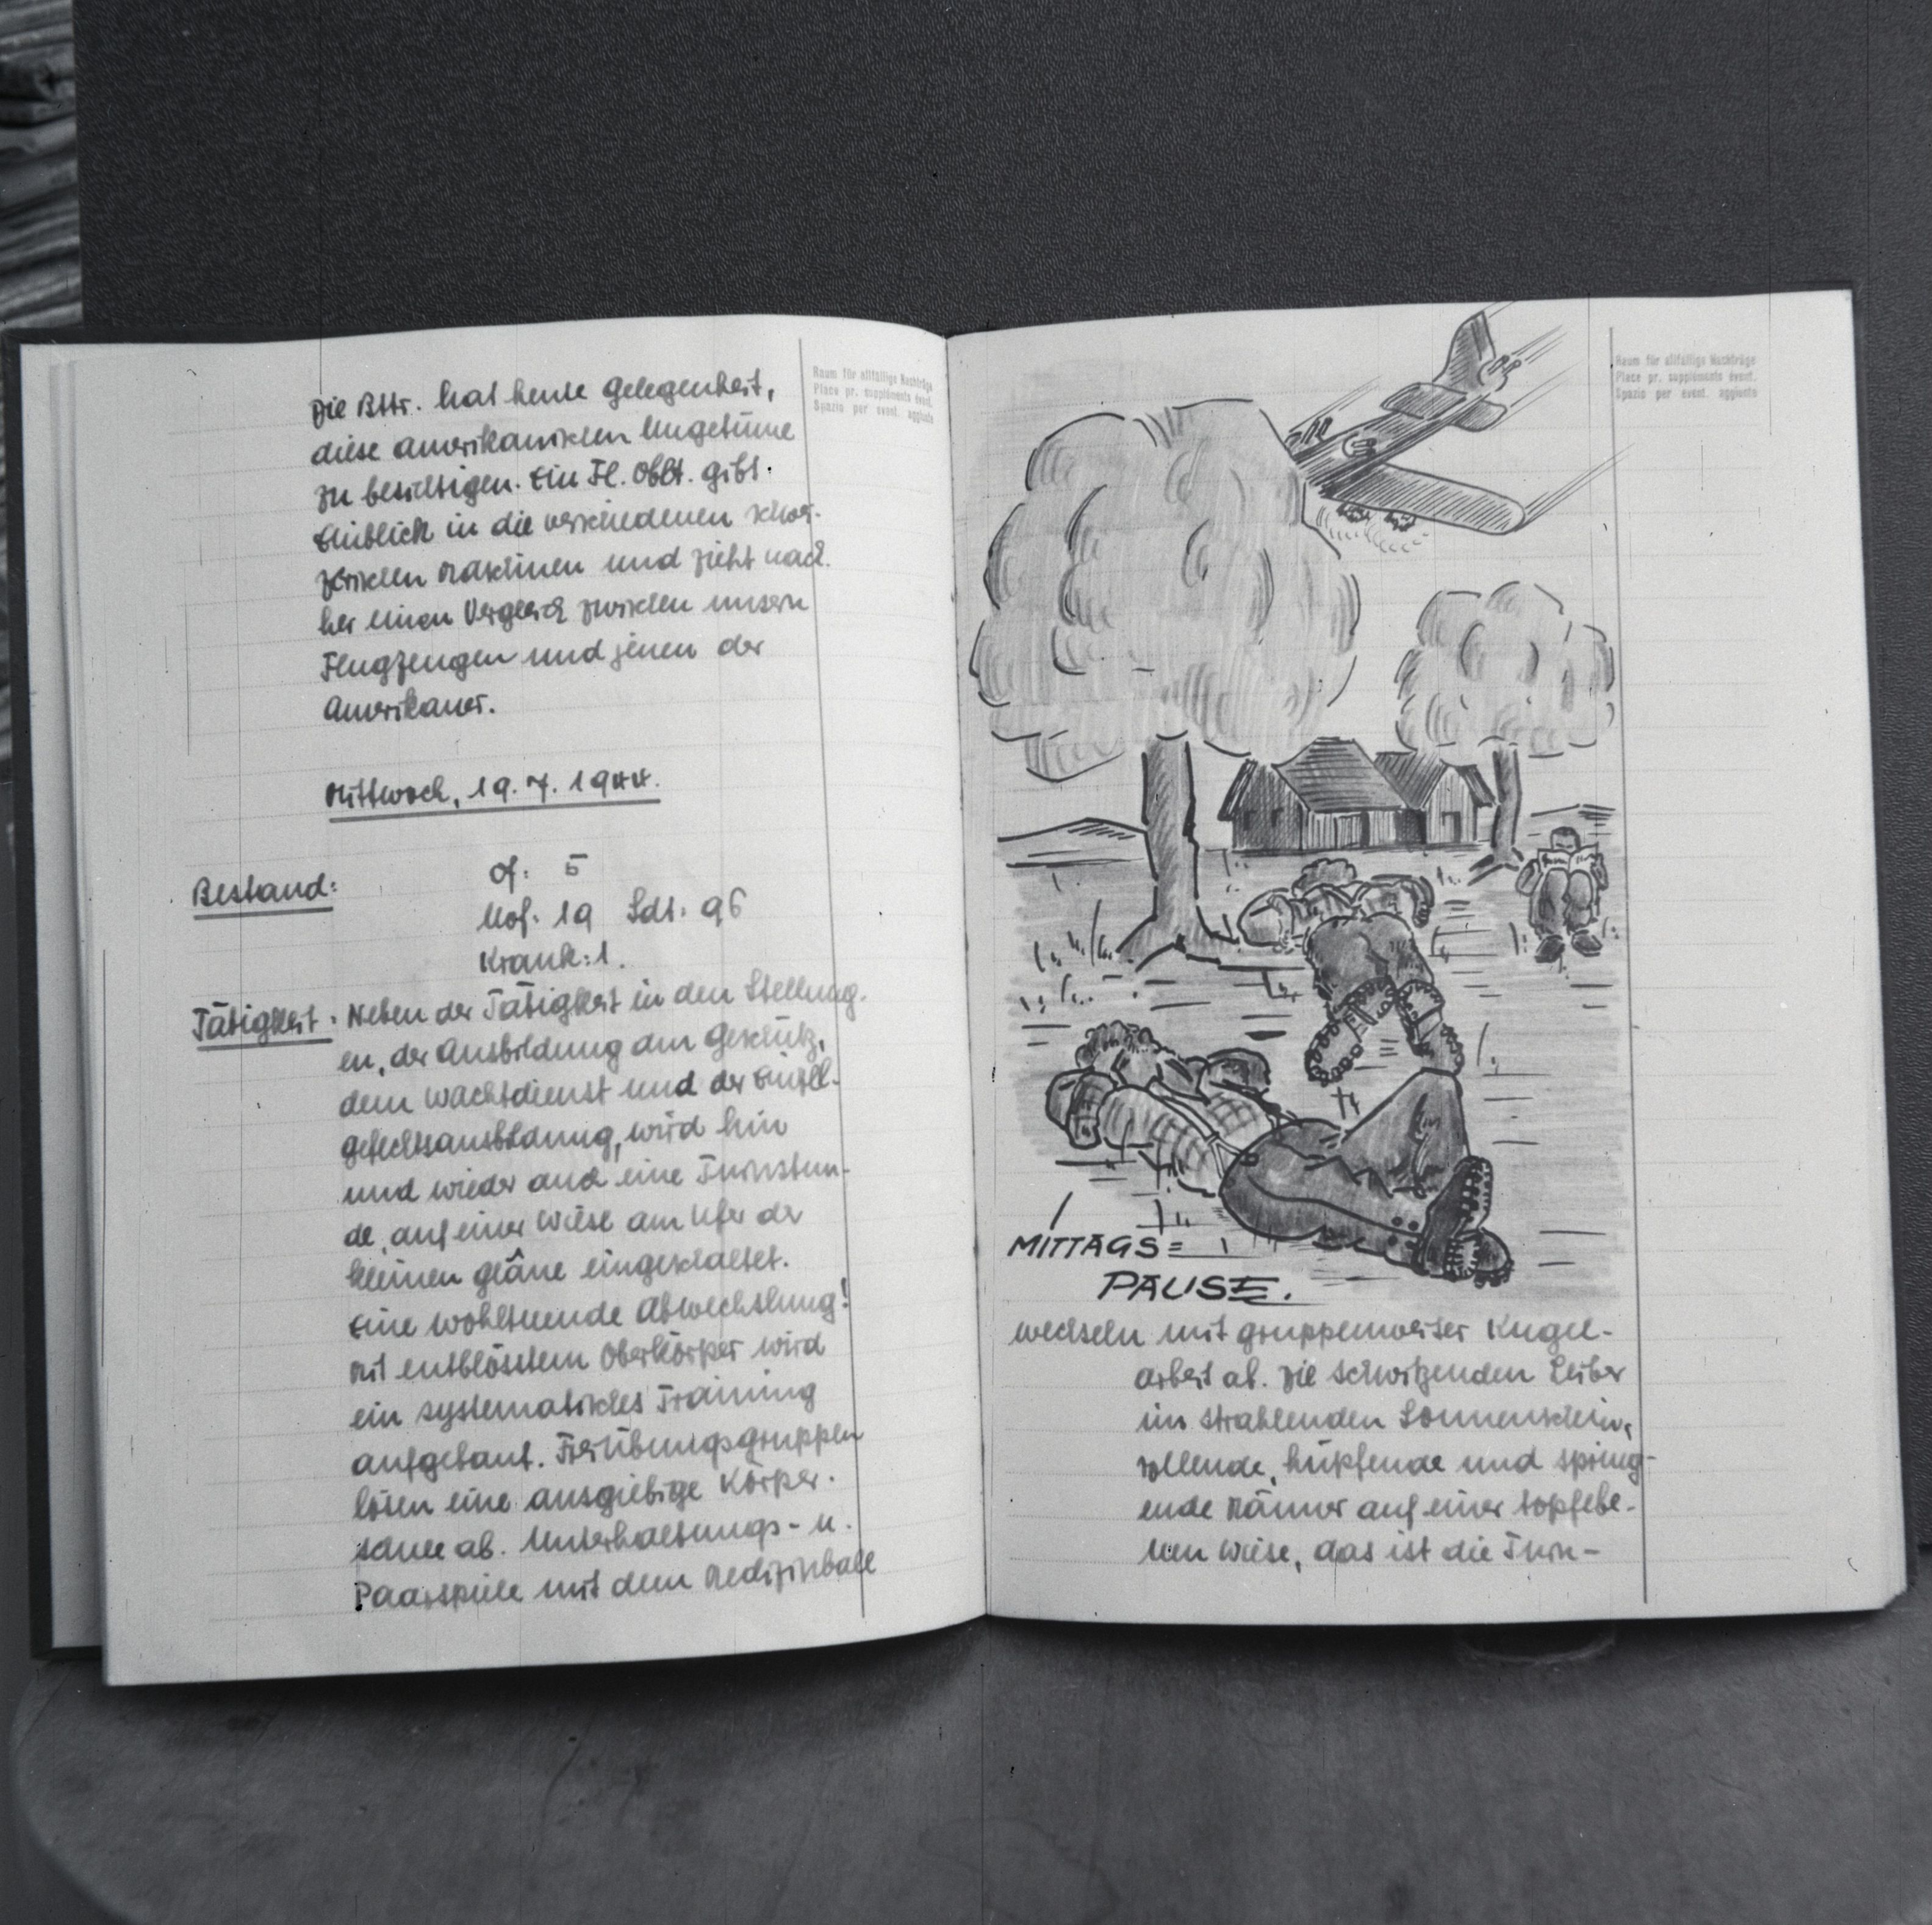 Die Bttr. hat heute Gelegenheit,
diese amerikanischen Ungetüme
zu besichtigen. Ein Fl. Oblt. gibt
Einblick in die verschiedenen schwei-
zerischen Maschinen und zieht nach-
her einen Vergleich zwischen unsern
Flugzeugen und jenen der
Amerikaner.
Mittwoch, 19. 7. 1944.
Bestand: Of: 5
Uof: 19 Sdt: 96
Krank: 1.
Tätigkeit: Neben der Tätigkeit in den Stellung-
en, der Ausbildung am Geschütz,
dem Wachtdienst und der Einzel-
gefechtsausbildung, wird hin
und wieder auch eine Turnstun-
de, auf einer Wiese am Ufer der
kleinen Glâne eingeschaltet.
Eine wohltuende Abwechslung!
Mit entblösstem Oberkörper wird
ein systematisches Training
aufgebaut. Freiübungsgruppen
lösen eine ausgiebige Körper-
schule ab. Unterhaltungs- u.
Paarspiele mit dem Medizinball
Raum für allfällige Nachträge
Place pr. suppléments évent.
Spazio per event. aggiunte
Raum für allfällige Nachträge
Place pr. suppléments évent.
Spazio per event. aggiunte
MITTAGS=
PAUSE.
wechseln mit gruppenweiser Kugel-
arbeit ab. Die schwitzenden Leiber
im strahlenden Sonnenschein,
rollende, hüpfende und spring-
ende Männer auf einer topfebe-
nen Wiese, das ist die Turn-